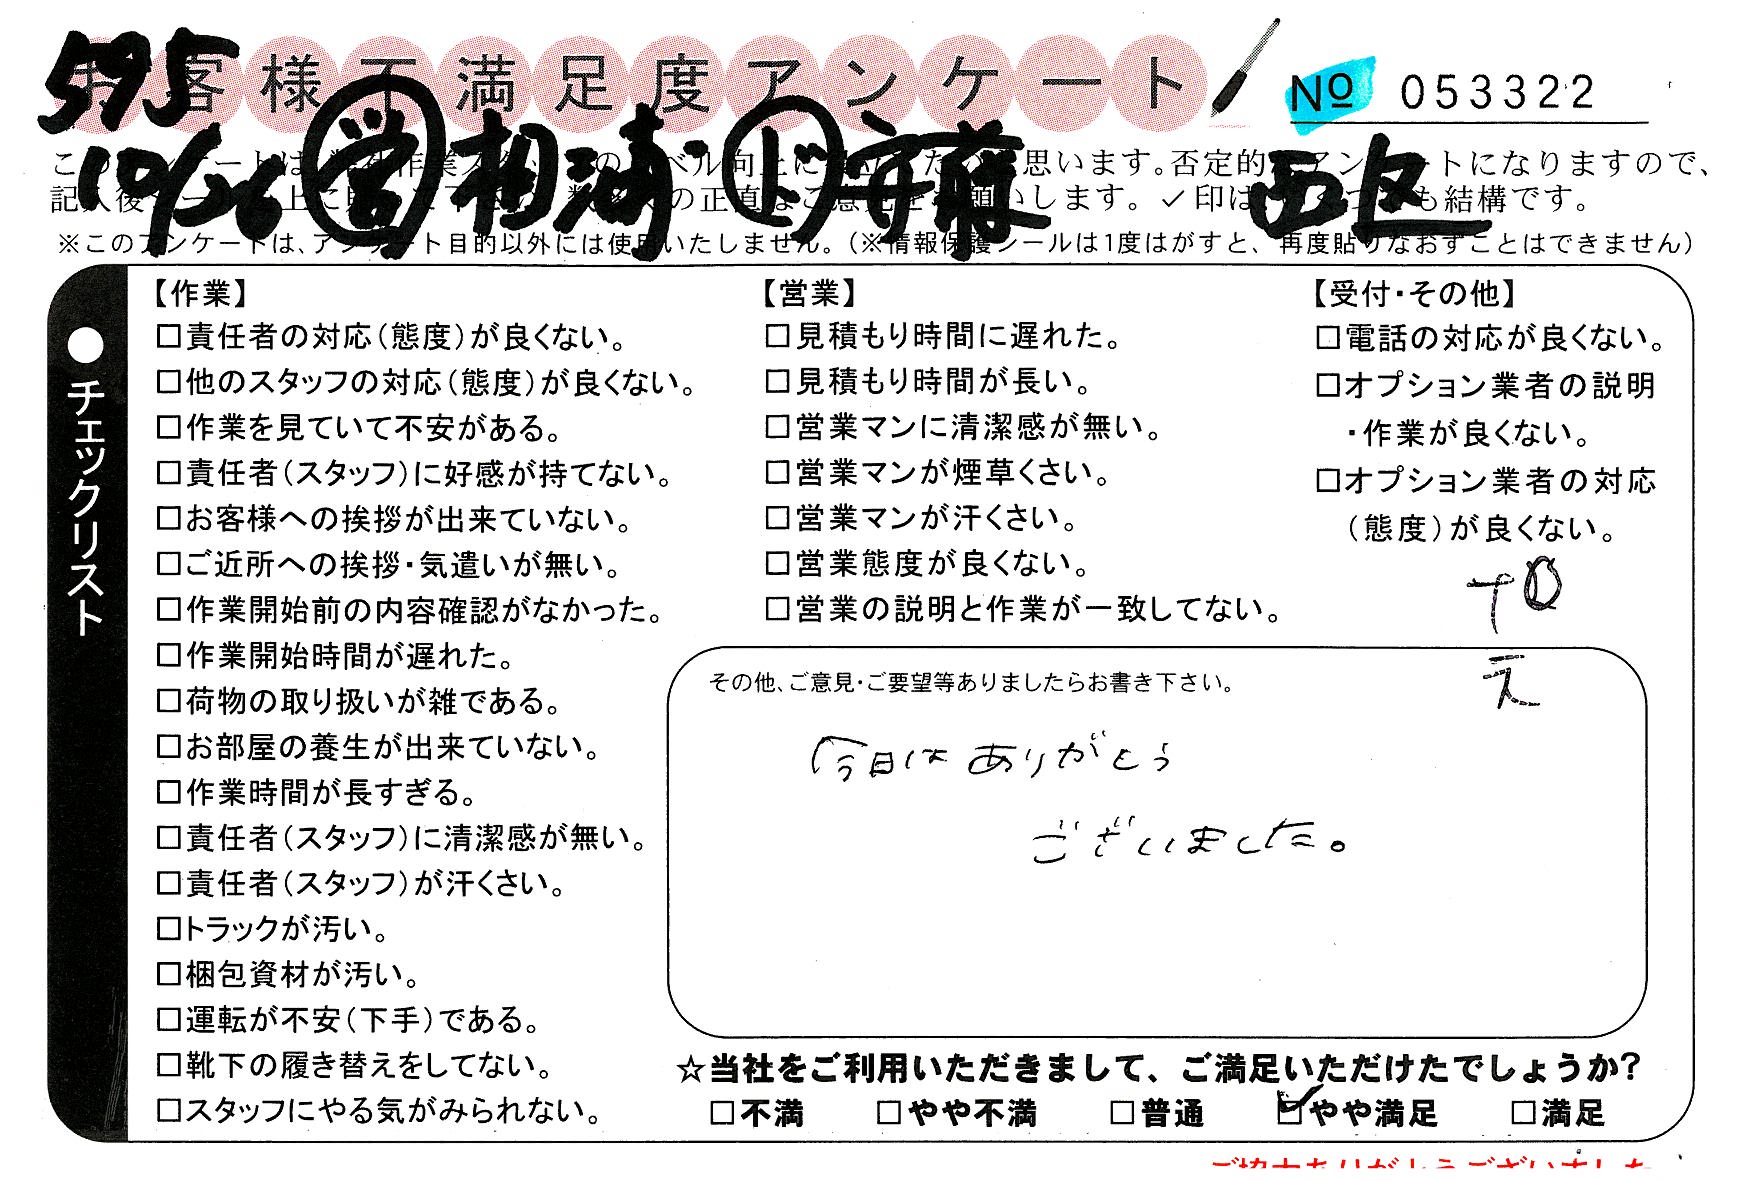 595
お客様不満足度アンケート
No 053322
10/26 営 相浦 ド 斉藤 西区
※このアンケートは、アンケート目的以外には使用いたしません。（※情報保護シールは1度はがすと、再度貼りなおすことはできません）
●チェックリスト
【作業】
□責任者の対応（態度）が良くない。
□他のスタッフの対応（態度）が良くない。
□作業を見ていて不安がある。
□責任者（スタッフ）に好感が持てない。
□お客様への挨拶が出来ていない。
□ご近所への挨拶・気遣いが無い。
□作業開始前の内容確認がなかった。
□作業開始時間が遅れた。
□荷物の取り扱いが雑である。
□お部屋の養生が出来ていない。
□作業時間が長すぎる。
□責任者（スタッフ）に清潔感が無い。
□責任者（スタッフ）が汗くさい。
□トラックが汚い。
□梱包資材が汚い。
□運転が不安（下手）である。
□靴下の履き替えをしてない。
□スタッフにやる気がみられない。
【営業】
□見積もり時間に遅れた。
□見積もり時間が長い。
□営業マンに清潔感が無い。
□営業マンが煙草くさい。
□営業マンが汗くさい。
□営業態度が良くない。
□営業の説明と作業が一致してない。
【受付・その他】
□電話の対応が良くない。
□オプション業者の説明
・作業が良くない。
□オプション業者の対応
（態度）が良くない。
その他、ご意見・ご要望等ありましたらお書き下さい。
今日はありがとう
ございました。
☆当社をご利用いただきまして、ご満足いただけたでしょうか?
□不満 □やや不満 □普通 ☑やや満足 □満足
ご協力ありがとうございました